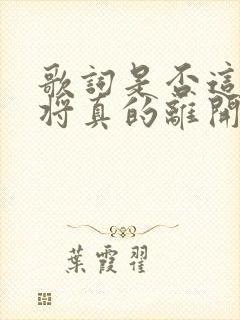 歌詞是否這
將真的離開
葉霞翟